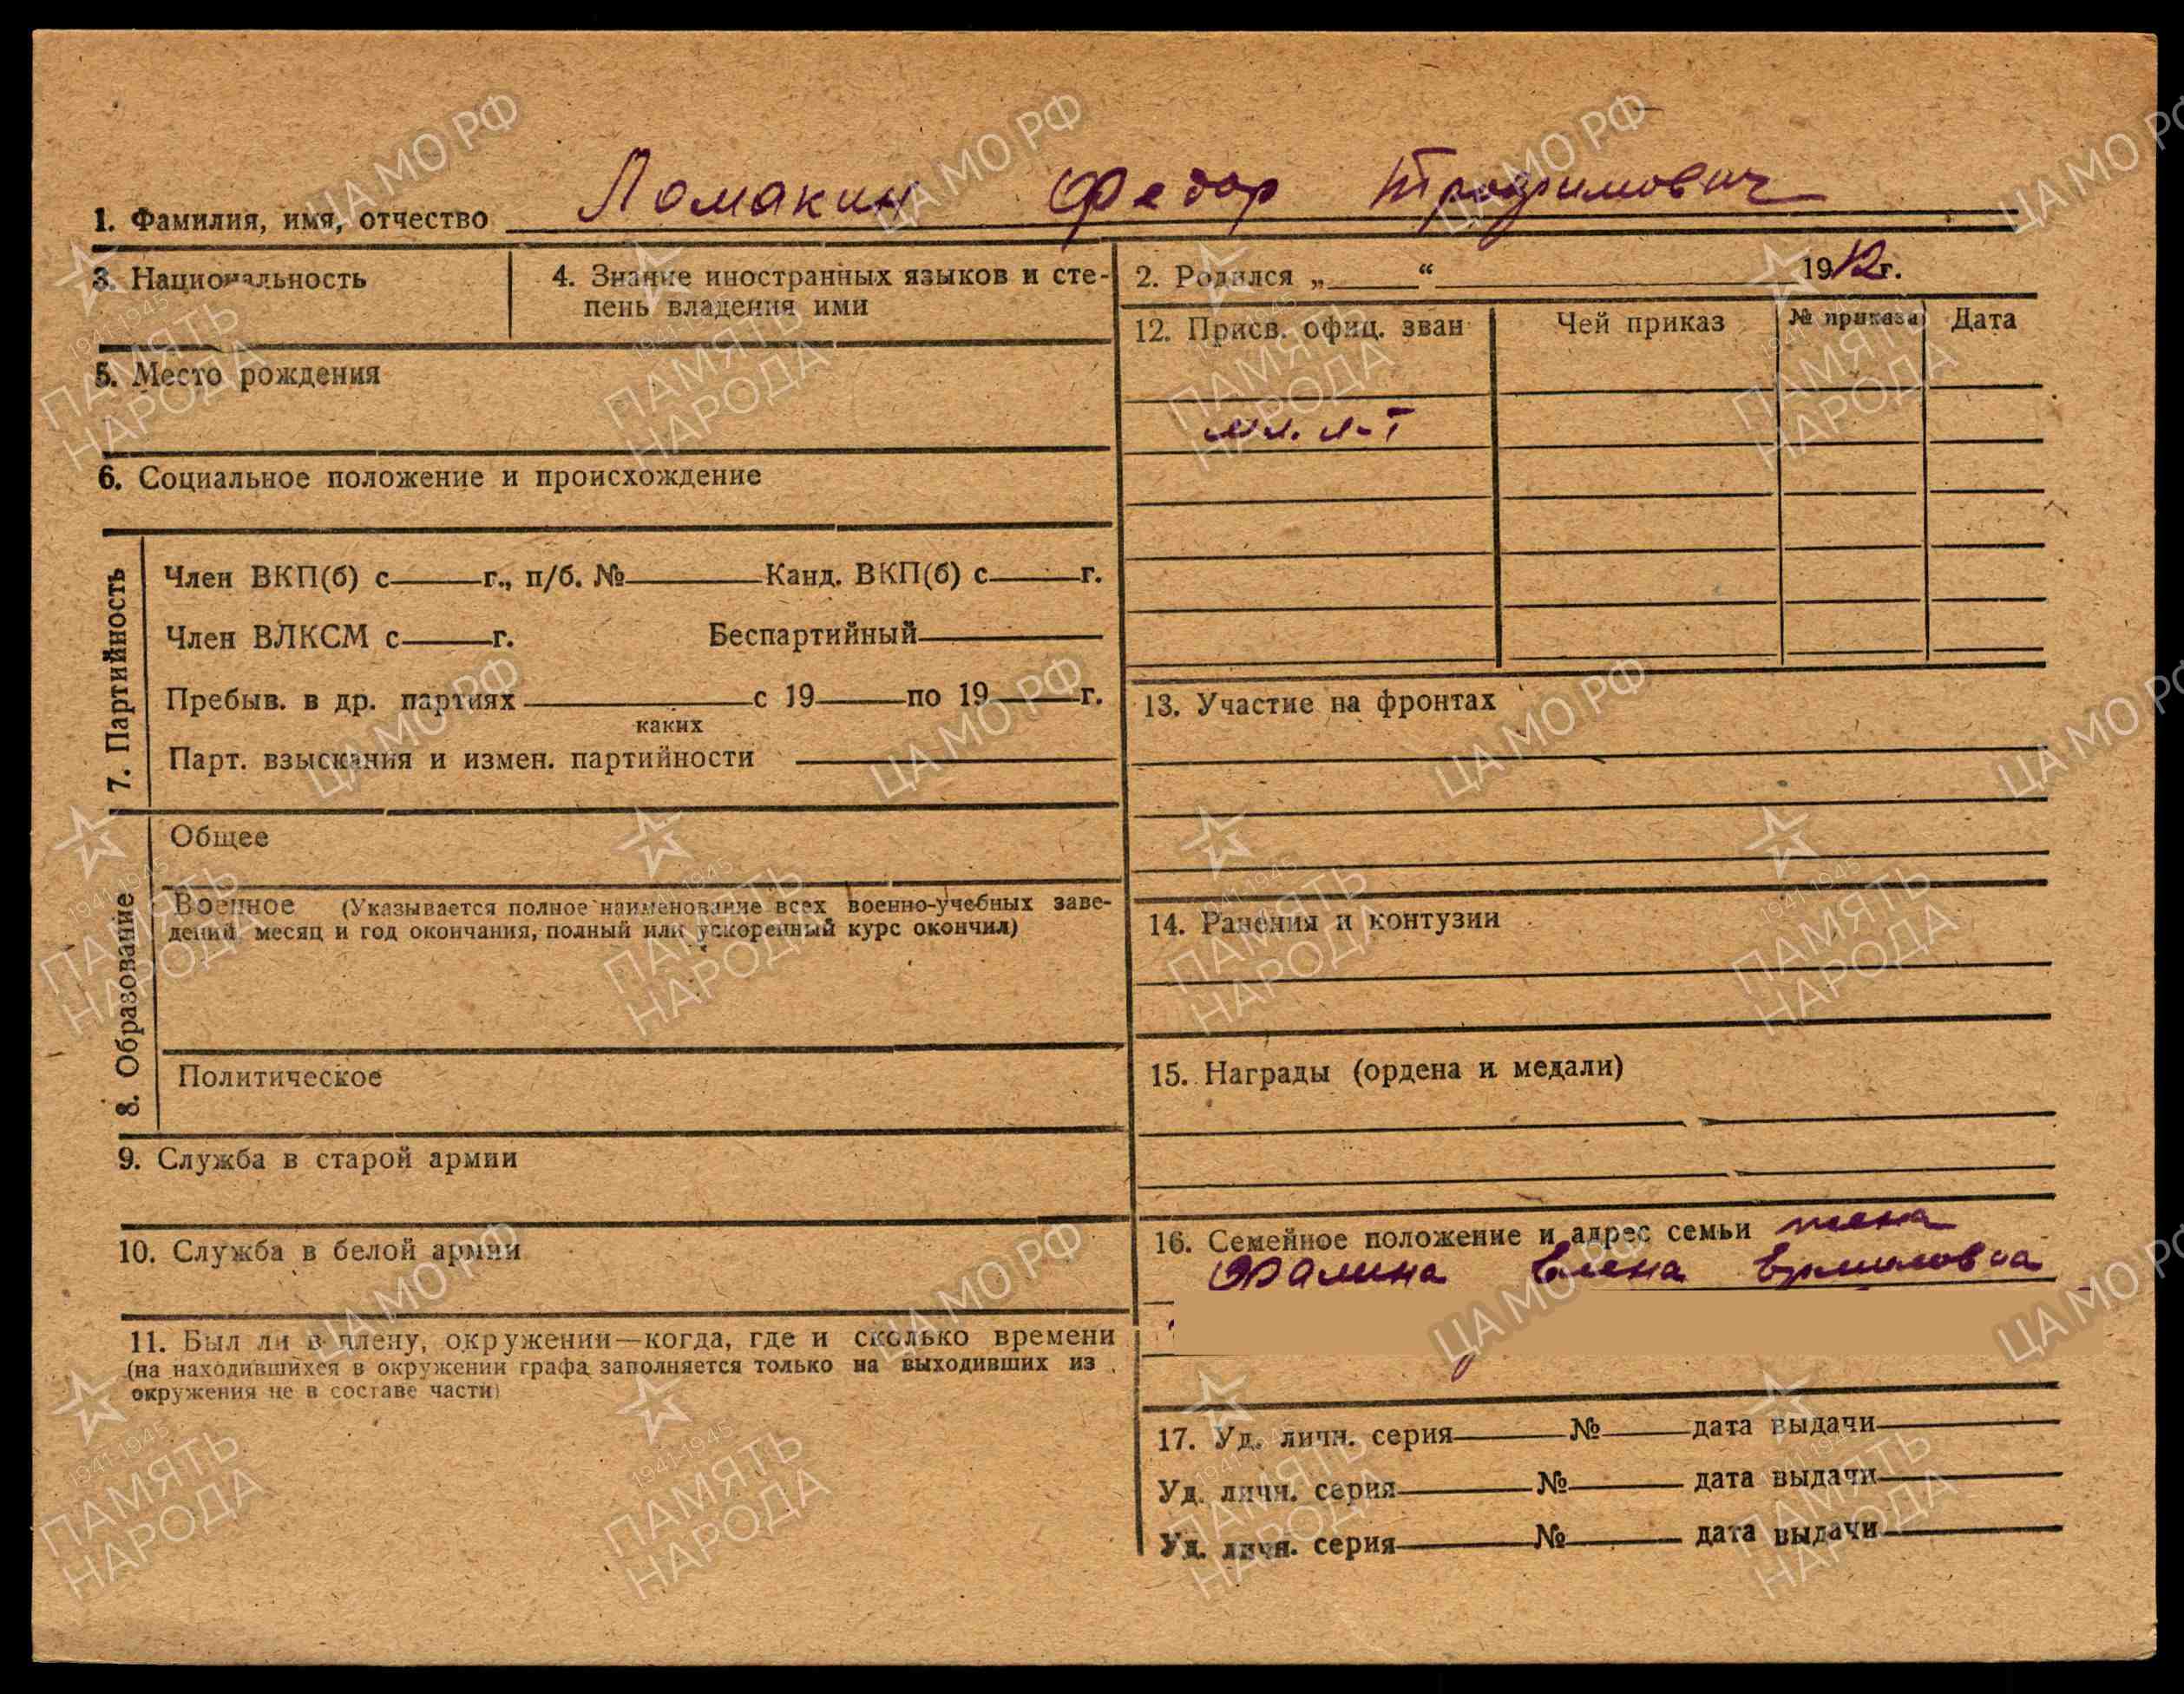 1. Фамилия, имя, отчество Ломакин Федор Трофимович
3. Национальность
4. Знание иностранных языков и сте-
пень владения ими
2. Родился „ “ 1912 г.
5. Место рождения
6. Социальное положение и происхождение
7. Партийность
Член ВКП(б) с г., п/б. № Канд. ВКП(б) с г.
Член ВЛКСМ с г. Беспартийный
Пребыв. в др. партиях с 19 по 19 г.
каких
Парт. взыскания и измен. партийности
8. Образование
Общее
Военное (Указывается полное наименование всех военно-учебных заве-
дений, месяц и год окончания, полный или ускоренный курс окончил)
Политическое
9. Служба в старой армии
10. Служба в белой армии
11. Был ли в плену, окружении—когда, где и сколько времени
(на находившихся в окружении графа заполняется только на выходивших из
окружения не в составе части)
12. Присв. офиц. зван Чей приказ № приказа Дата
мл. л-т
13. Участие на фронтах
14. Ранения и контузии
15. Награды (ордена и медали)
16. Семейное положение и адрес семьи жена
Елена
17. Уд. личн. серия № дата выдачи
Уд. личн. серия № дата выдачи
Уд. личн. серия № дата выдачи
ЦАМО РФ
1941-1945
ПАМЯТЬ
НАРОДА